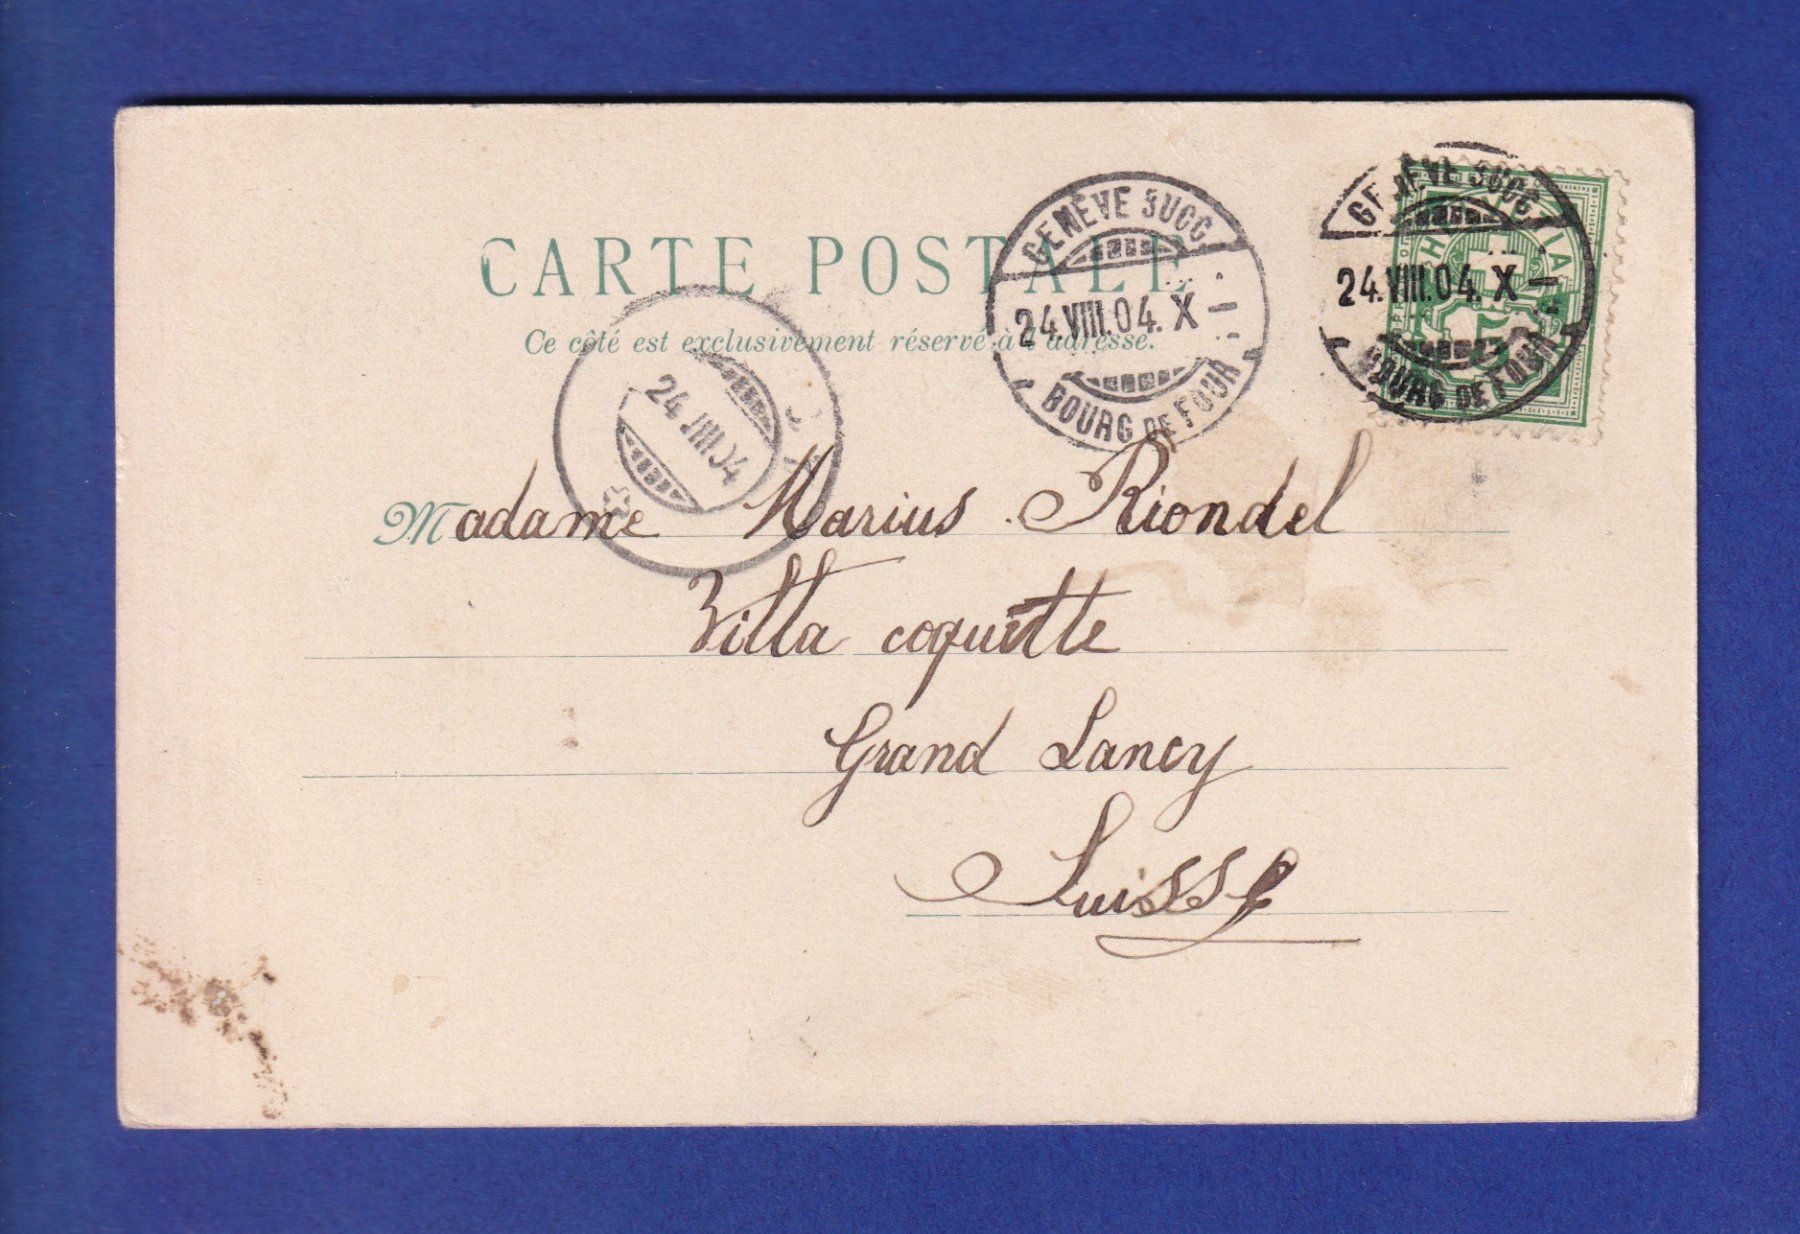 CARTE POSTALE
Ce côté est exclusivement réservé à l'adresse.
GENÈVE SUCC
24.VIII.04. X
BOURG DE FOUR
GENÈVE SUCC
24.VIII.04. X
BOURG DE FOUR
5
24 VIII 04
Madame Marius Riondel
Villa coquette
Grand Lancy
Suisse